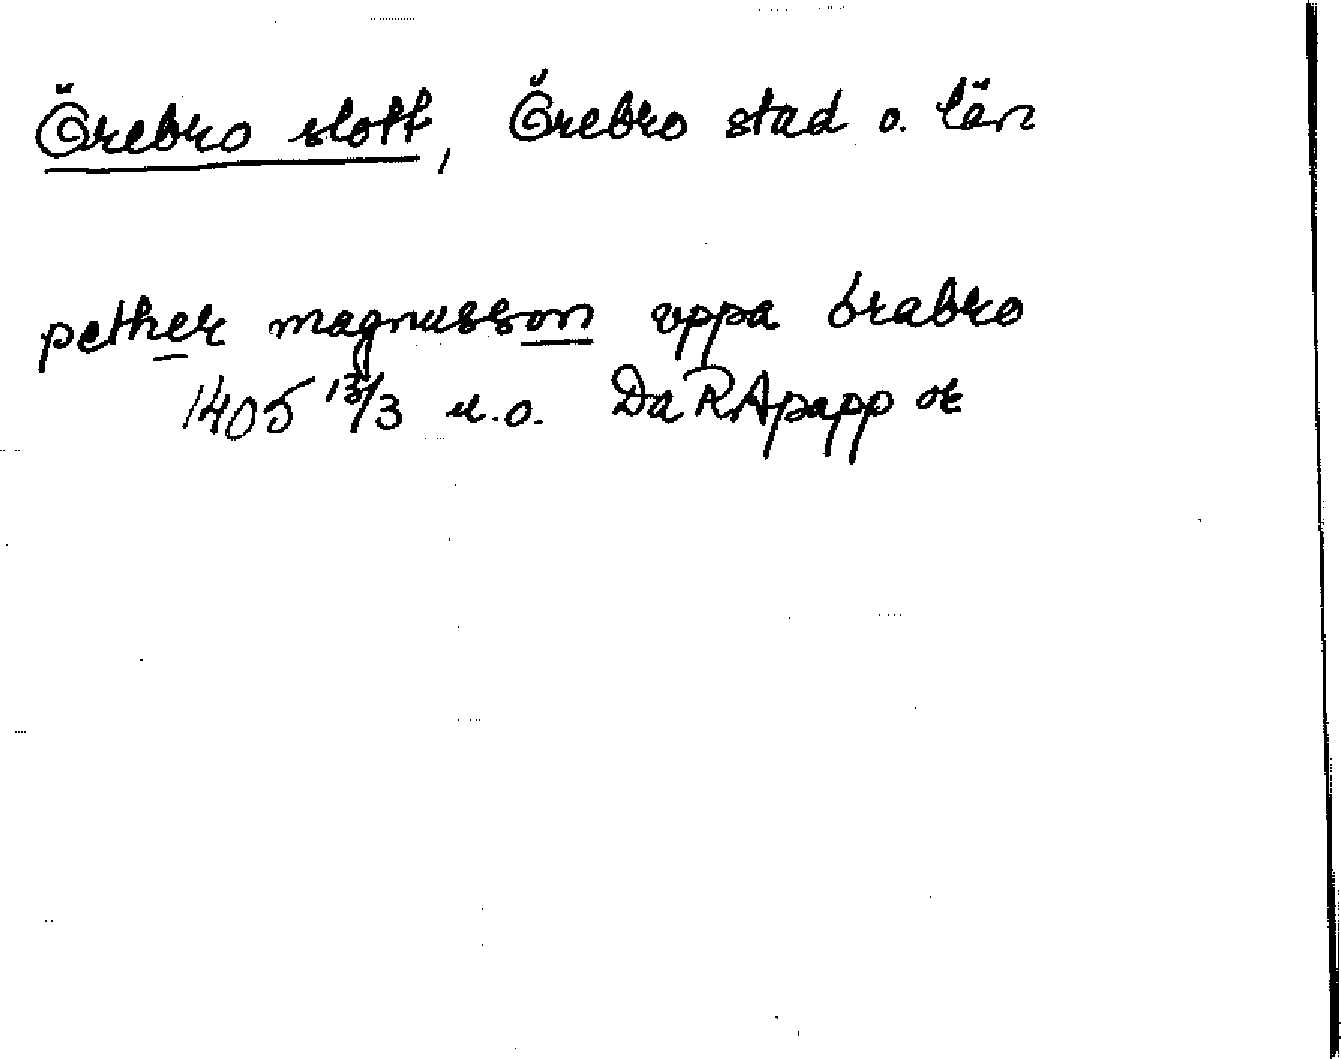 Örebro slott, Örebro stad o. län
pether magnusson vppa örabro
1405 13/3 u.o. Da RApapp or